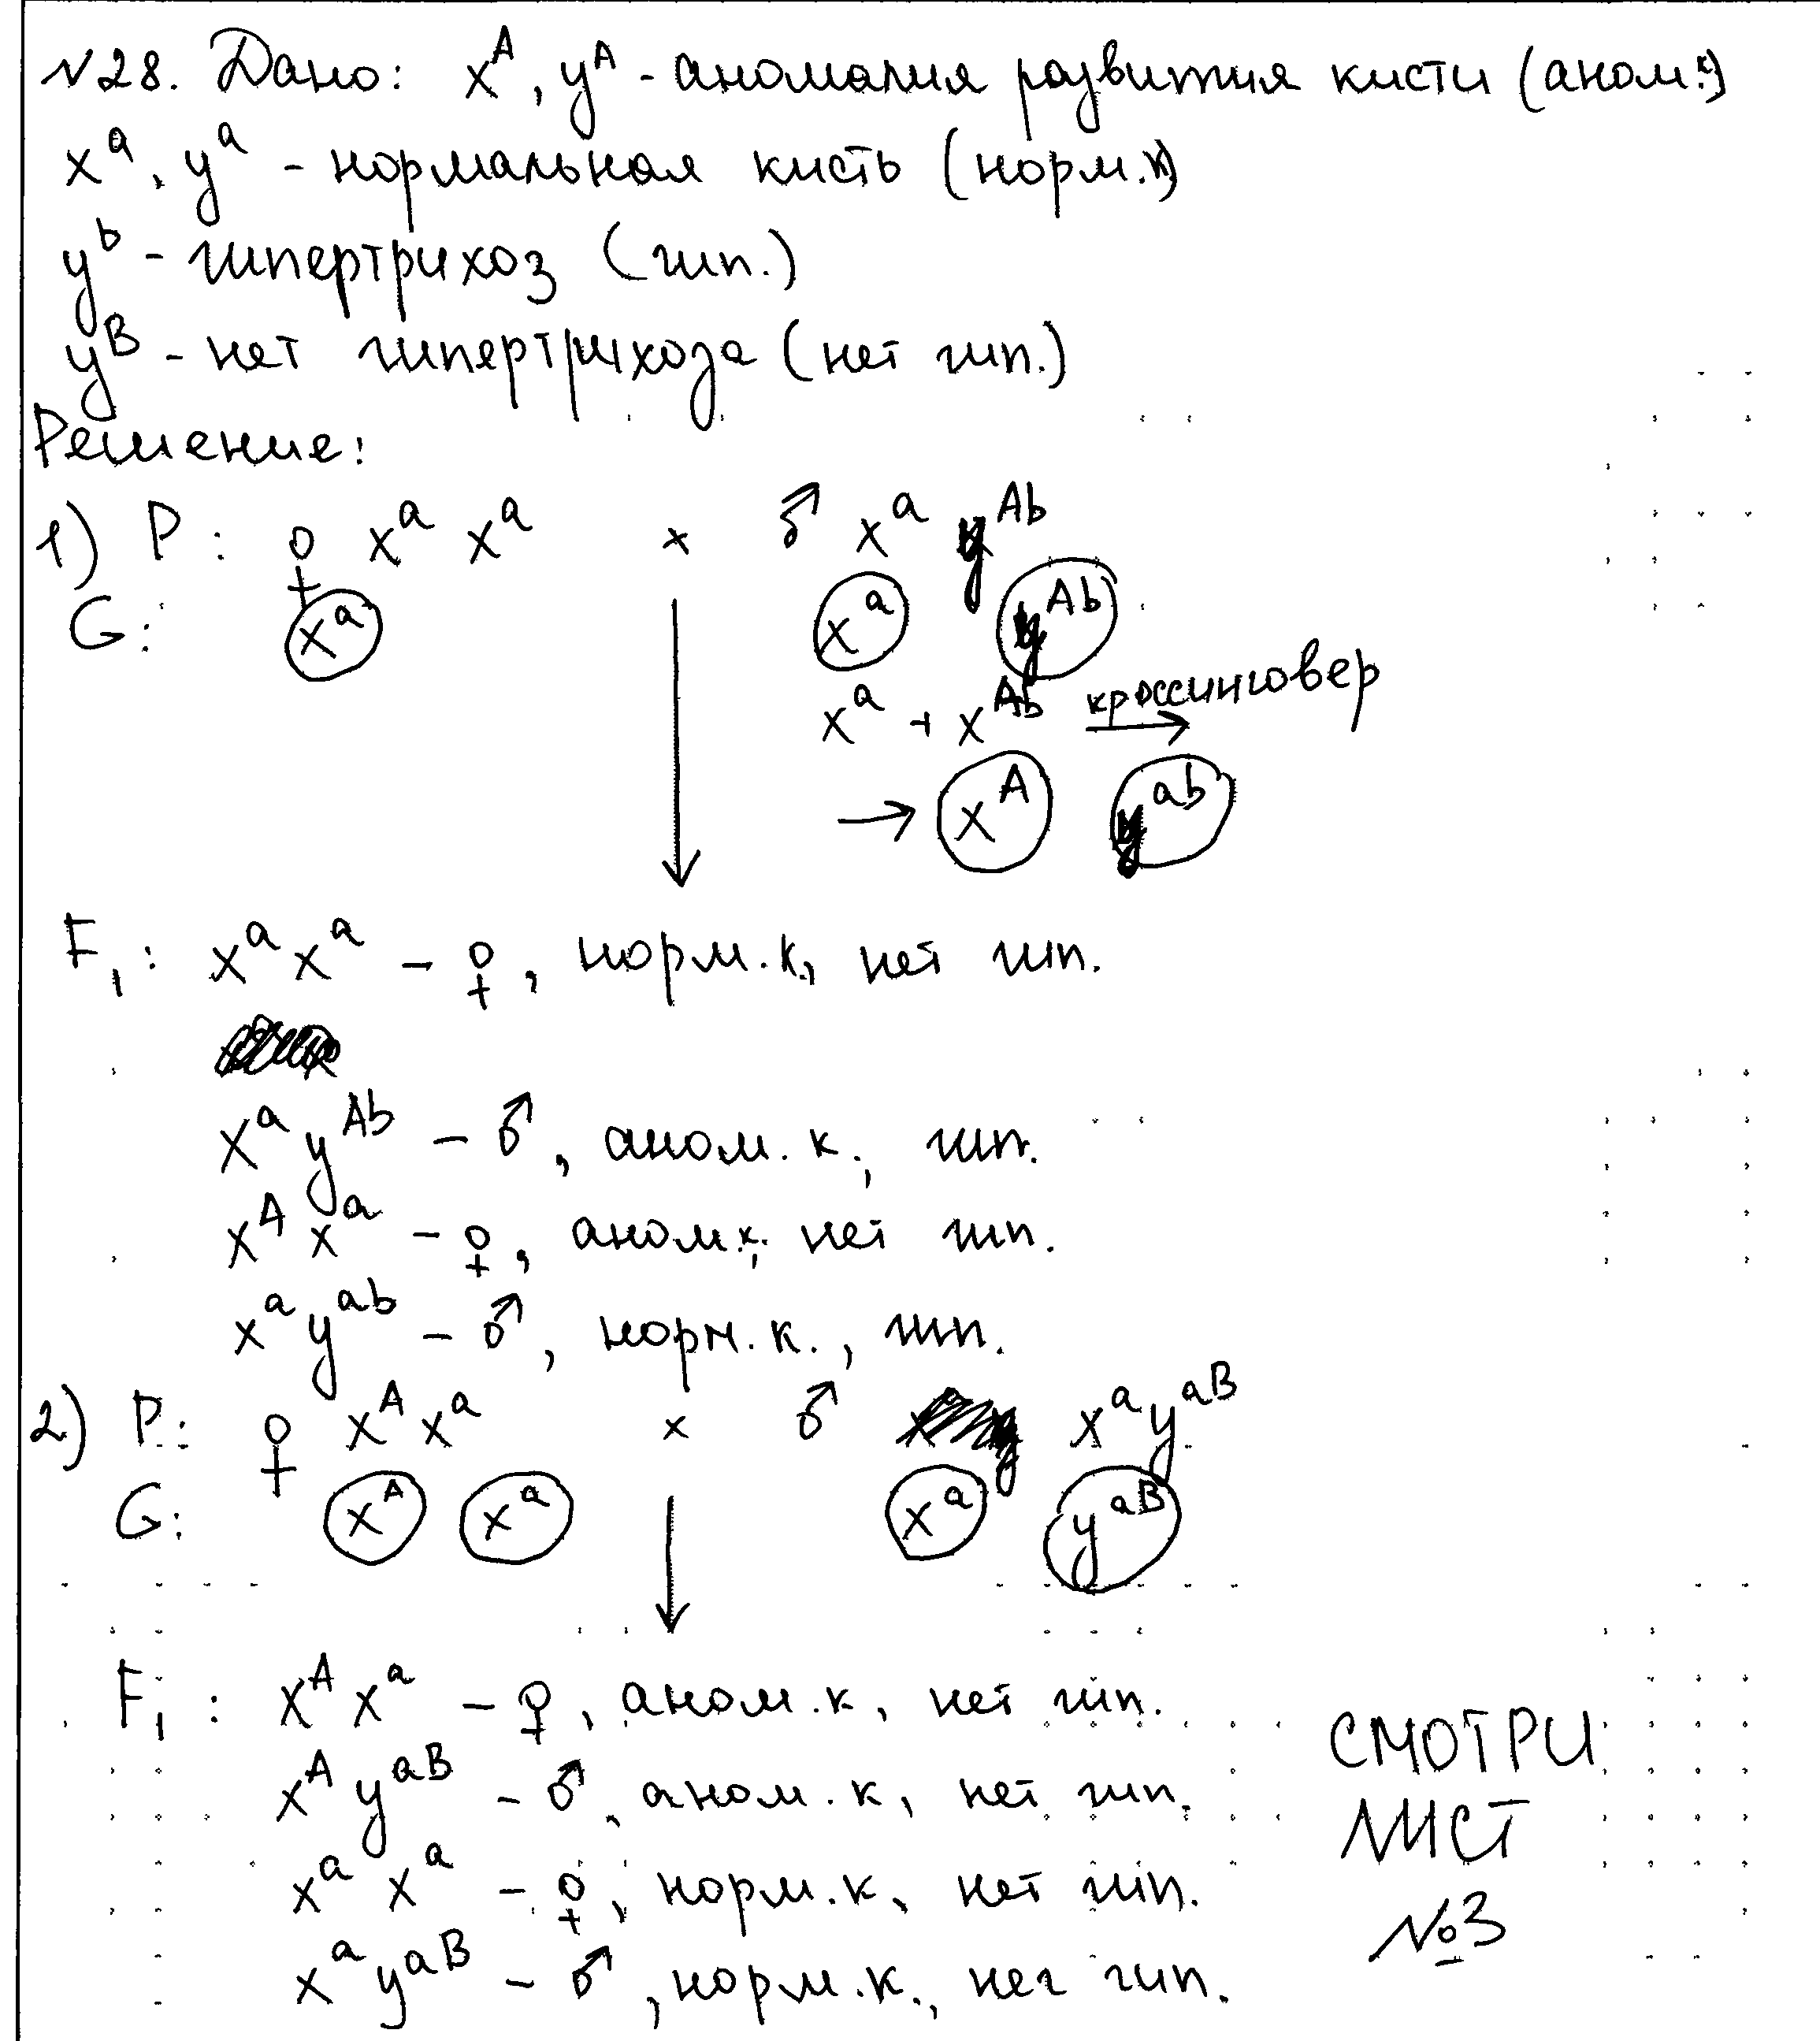 №28. Дано: x^A, y^A - аномалия развития кисти (аном.к)
x^a, y^a - нормальная кисть (норм.к)
y^b - гипертрихоз (гип.)
y^B - нет гипертрихоза (нет гип.)
Решение:
1) P: ♀ x^a x^a × ♂ x^a y^Ab
G: x^a x^a y^Ab
x^a + x^Ab кроссинговер →
→ x^A y^ab
F1: x^a x^a - ♀, норм.к, нет гип.
x^a y^Ab - ♂, аном.к., гип.
x^A x^a - ♀, аном.к, нет гип.
x^a y^ab - ♂, норм.к., гип.
2) P: ♀ x^A x^a × ♂ x^a y^aB
G: x^A x^a x^a y^aB
F1: x^A x^a - ♀, аном.к, нет гип.
x^A y^aB - ♂, аном.к, нет гип.
x^a x^a - ♀, норм.к, нет гип.
x^a y^aB - ♂, норм.к., нет гип.
СМОТРИ
ЛИСТ
№3